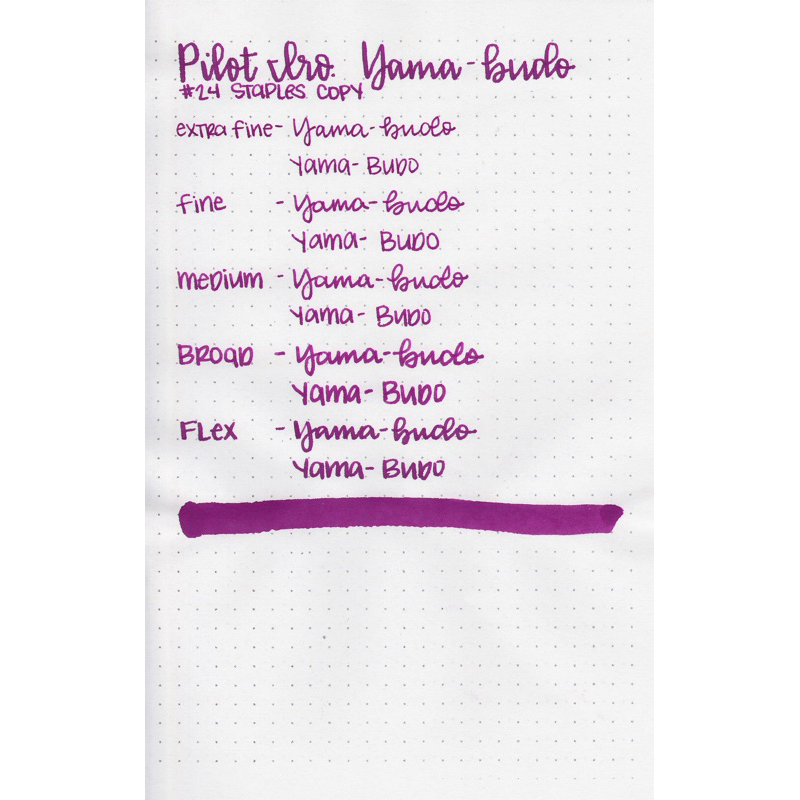 Pilot Iro. Yama-budo
#24 STAPLES COPY
extra fine - Yama-budo
Yama-Budo
fine - Yama-budo
Yama-Budo
medium - Yama-budo
Yama-Budo
Broad - Yama-budo
Yama-Budo
Flex - Yama-budo
Yama-Budo